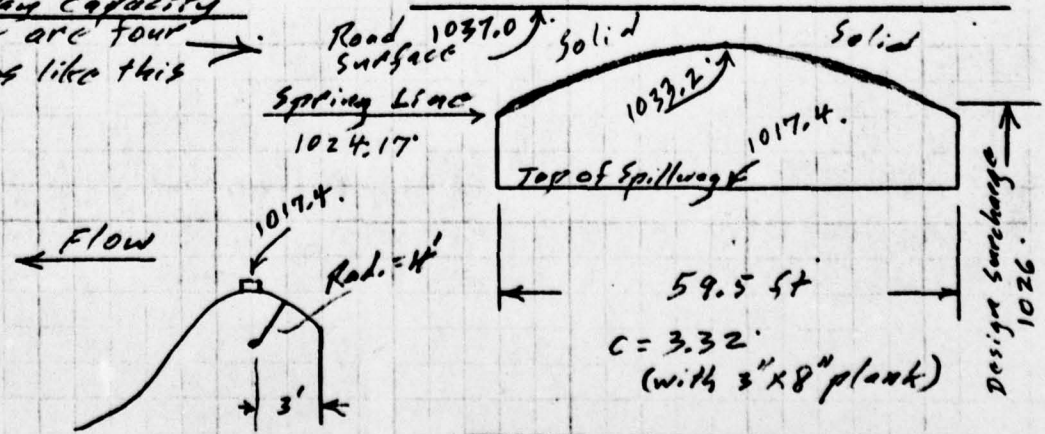 Capacity
are four
like this
Road 1037.0
Surface
Solid
Solid
Spring Line
1024.17'
1033.2'
1017.4.
Top of Spillway
Design Surcharge
1026.
Flow
1017.4.
Rad. = 4'
3'
59.5 ft
C = 3.32
(with 3" x 8" plank)